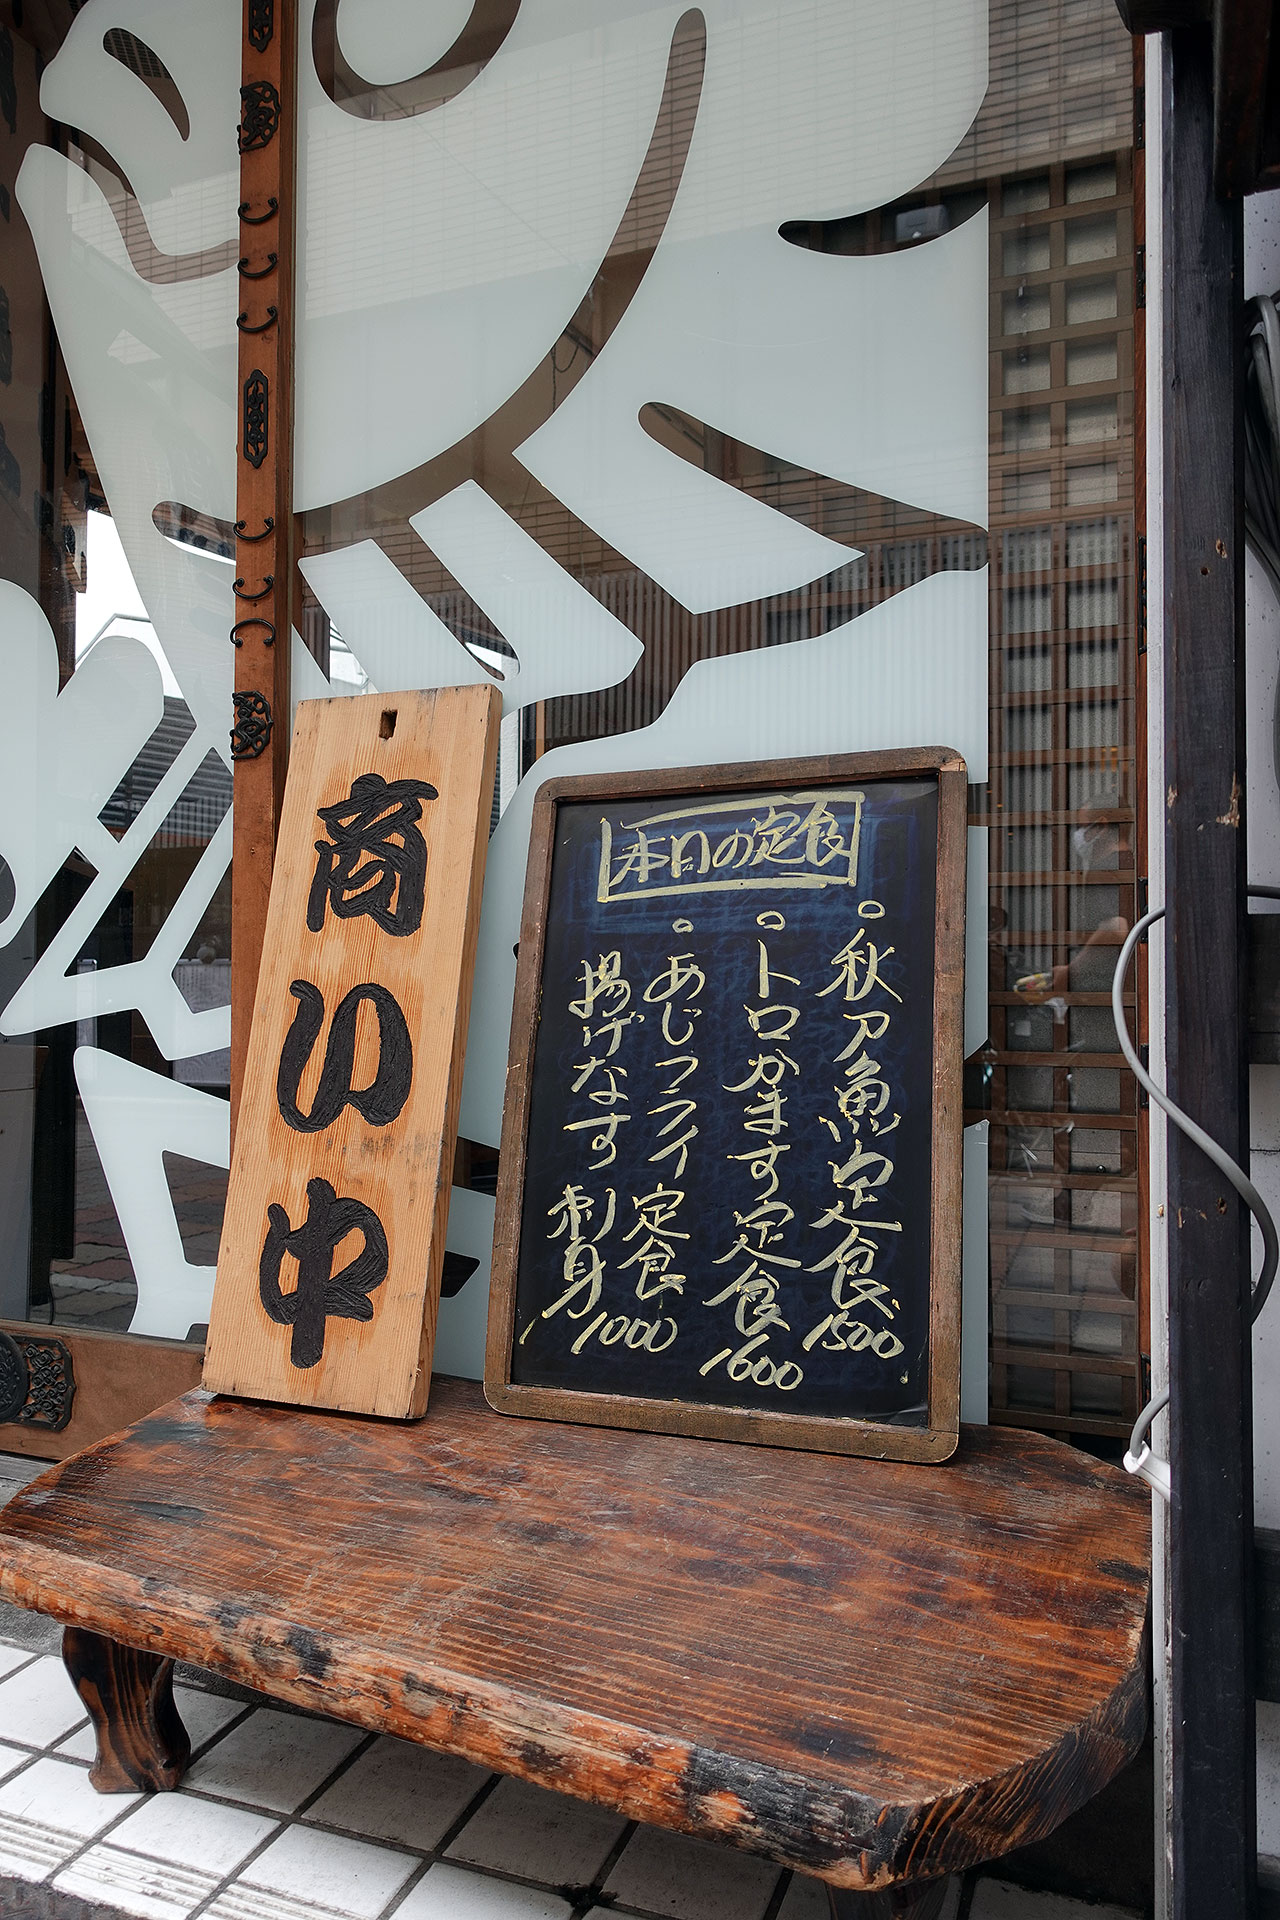 商い中
本日の定食
○秋刀魚定食 1500
○トロかます定食 1600
○あじフライ定食 1000
揚げなす 刺身